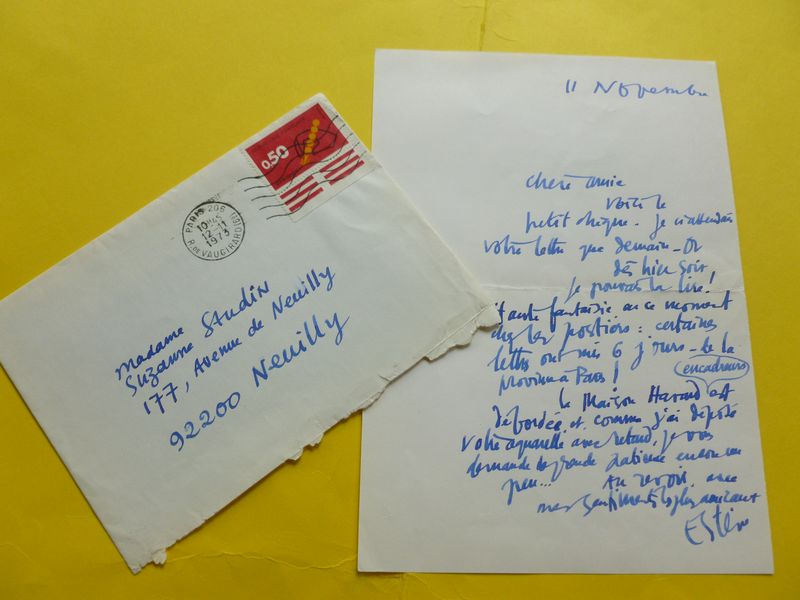 0,50
PARIS 206
10H45
12-11
1973
R. DE VAUGIRARD (15E)
Madame
Suzanne Studin
177, Avenue de Neuilly
92200 Neuilly
11 Novembre
chère amie
voici le
petit chèque. Je n'attendais
votre lettre que demain - Or
dès hier soir
je pouvais la lire!
haute fantaisie en ce moment
chez les postiers: certaines
lettres ont mis 6 jours - de la
province à Paris!
encadreurs
la Maison Havard est
débordée et, comme j'ai déposé
votre aquarelle avec retard, je vous
demande de grande patience encore un
peu...
Au revoir, avec
mes sentiments les plus amicaux
Estève